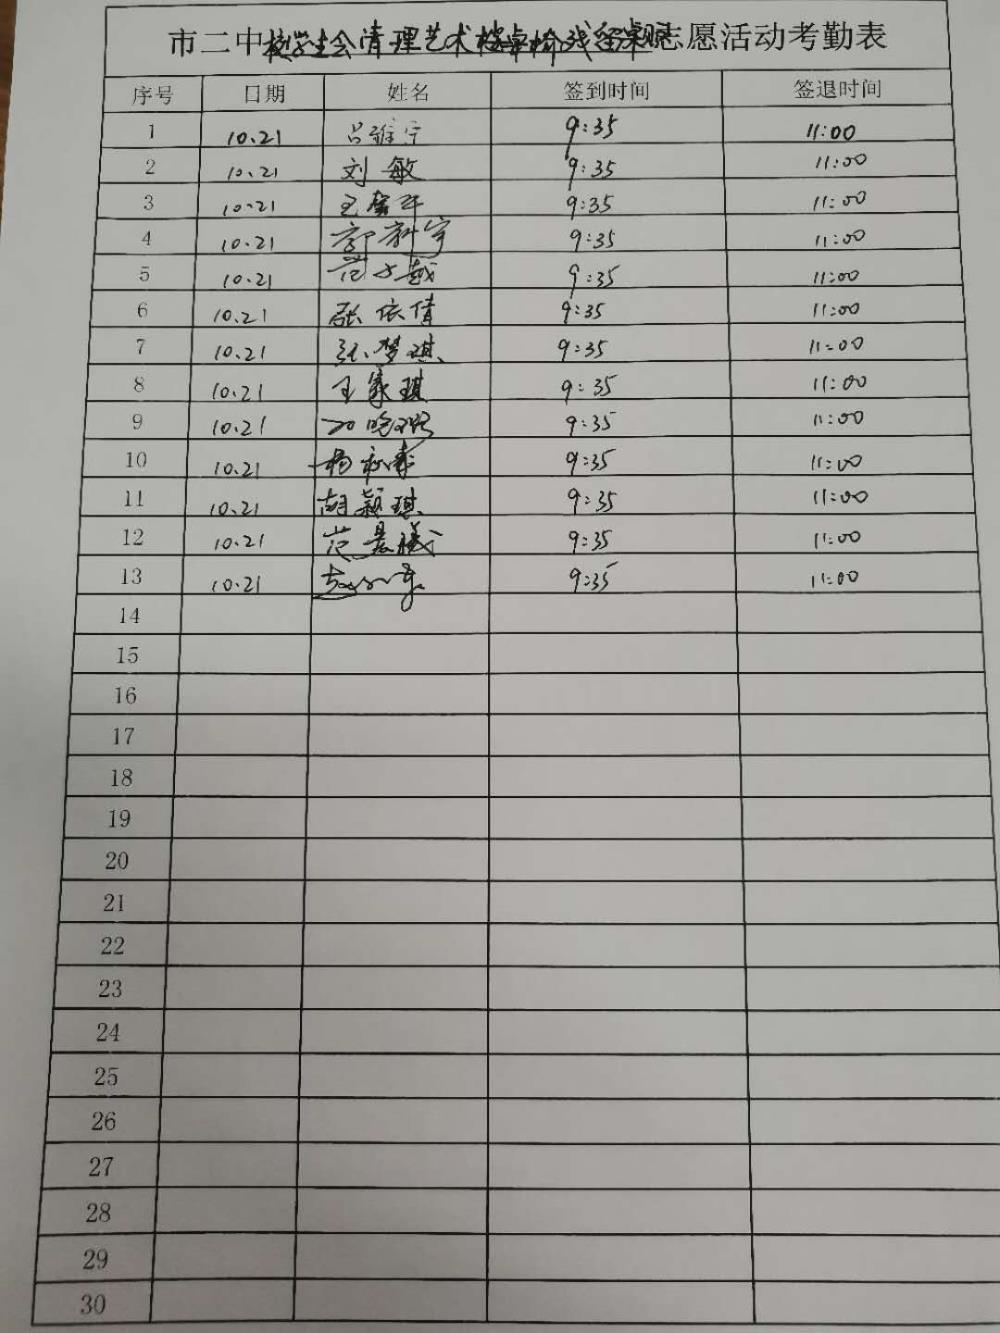 市二中校学生会清理艺术楼桌椅残留桌腿志愿活动考勤表
序号 日期 姓名 签到时间 签退时间
1 10.21 吕雅宁 9:35 11:00
2 10.21 刘敏 9:35 11:00
3 10.21 9:35 11:00
4 10.21 郭新宇 9:35 11:00
5 10.21 9:35 11:00
6 10.21 张依倩 9:35 11:00
7 10.21 张梦琪 9:35 11:00
8 10.21 王家琪 9:35 11:00
9 10.21 9:35 11:00
10 10.21 9:35 11:00
11 10.21 胡颖琪 9:35 11:00
12 10.21 范景曦 9:35 11:00
13 10.21 9:35 11:00
14
15
16
17
18
19
20
21
22
23
24
25
26
27
28
29
30